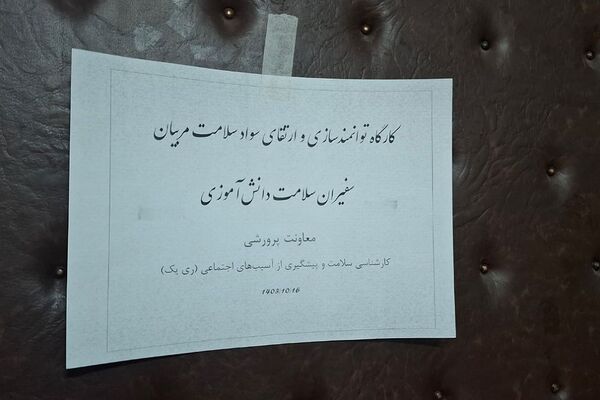 کارگاه توانمندسازی و ارتقای سواد سلامت مربیان
سفیران سلامت دانش‌آموزی
معاونت پرورشی
کارشناسی سلامت و پیشگیری از آسیب‌های اجتماعی (ری یک)
1403/10/16